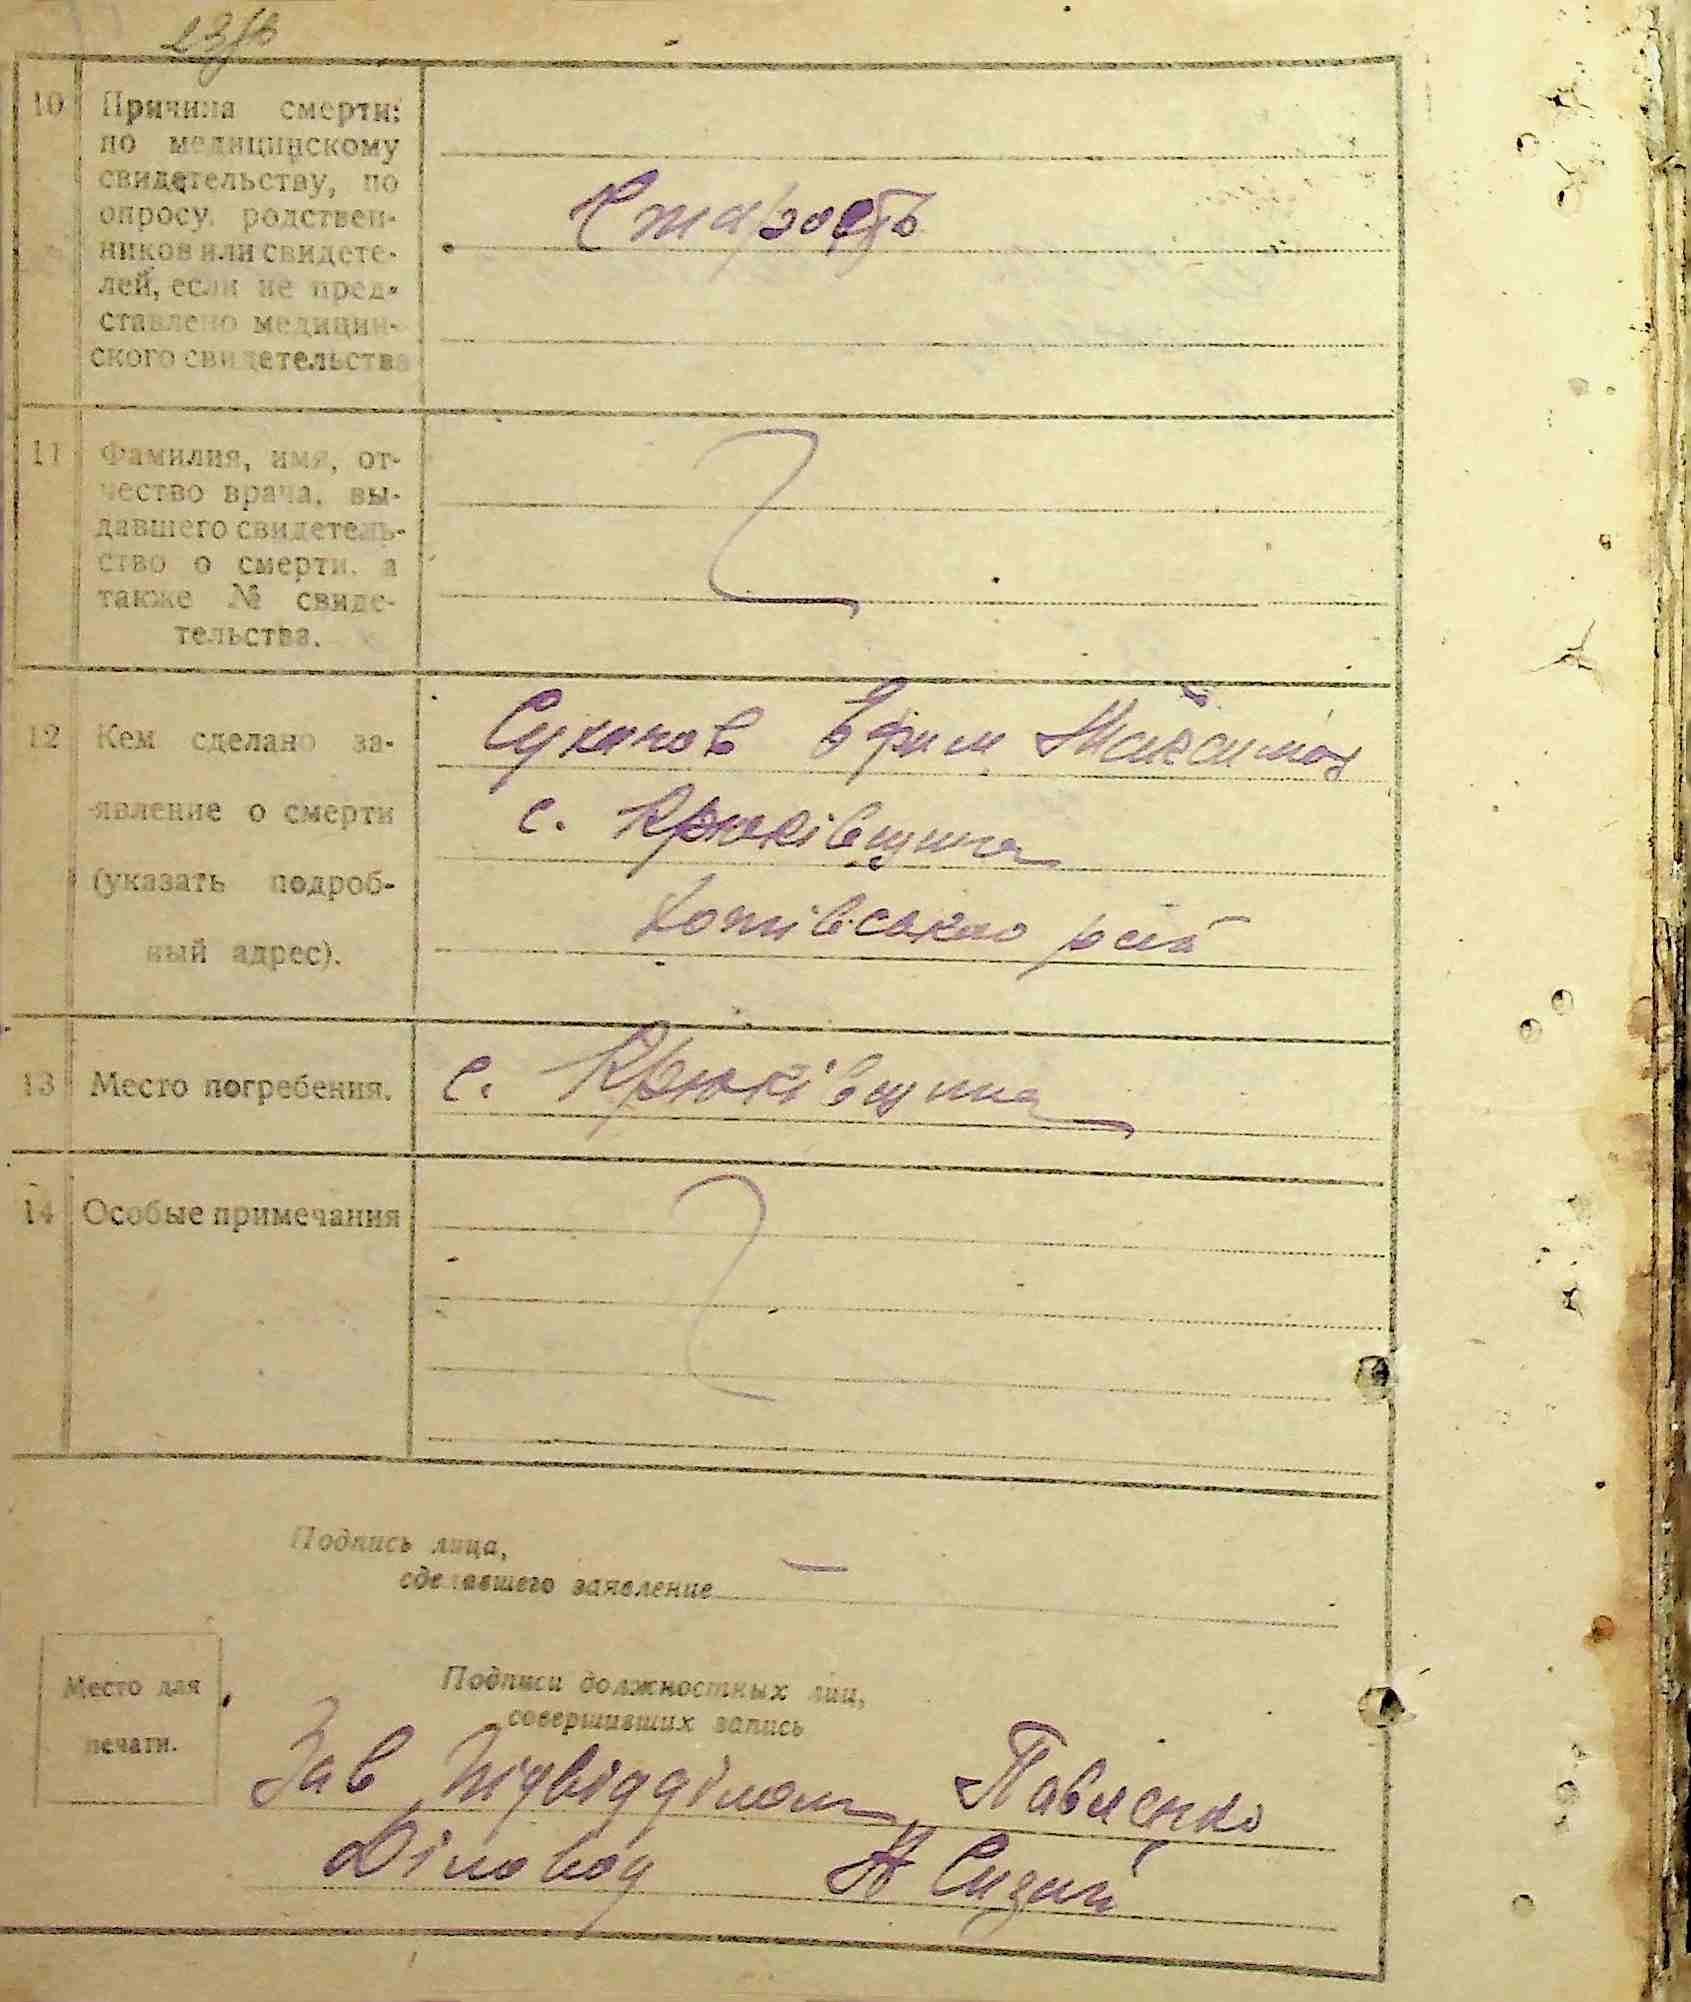 10 Причина смерти:
по медицинскому
свидетельству, по
опросу, родствен-
ников или свидете-
лей, если не пред-
ставлено медицин-
ского свидетельства
Старость
11 Фамилия, имя, от-
чество врача, вы-
давшего свидетель-
ство о смерти, а
также № свиде-
тельства.
12 Кем сделано за-
явление о смерти
(указать подроб-
ный адрес).
с. Крюківщина
рай
13 Место погребения.
с. Крюківщина
14 Особые примечания
Подпись лица,
сделавшего заявление
Место для
печати.
Подписи должностных лиц,
совершивших запись
Зав Підвідділом Павленко
Діловод